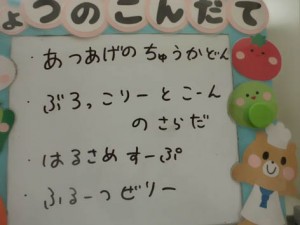 ょつのこんだて
・あつあげのちゅうかどん
・ぶろっこりーとこーん
のさらだ
・はるさめすーぷ
・ふるーつぜりー